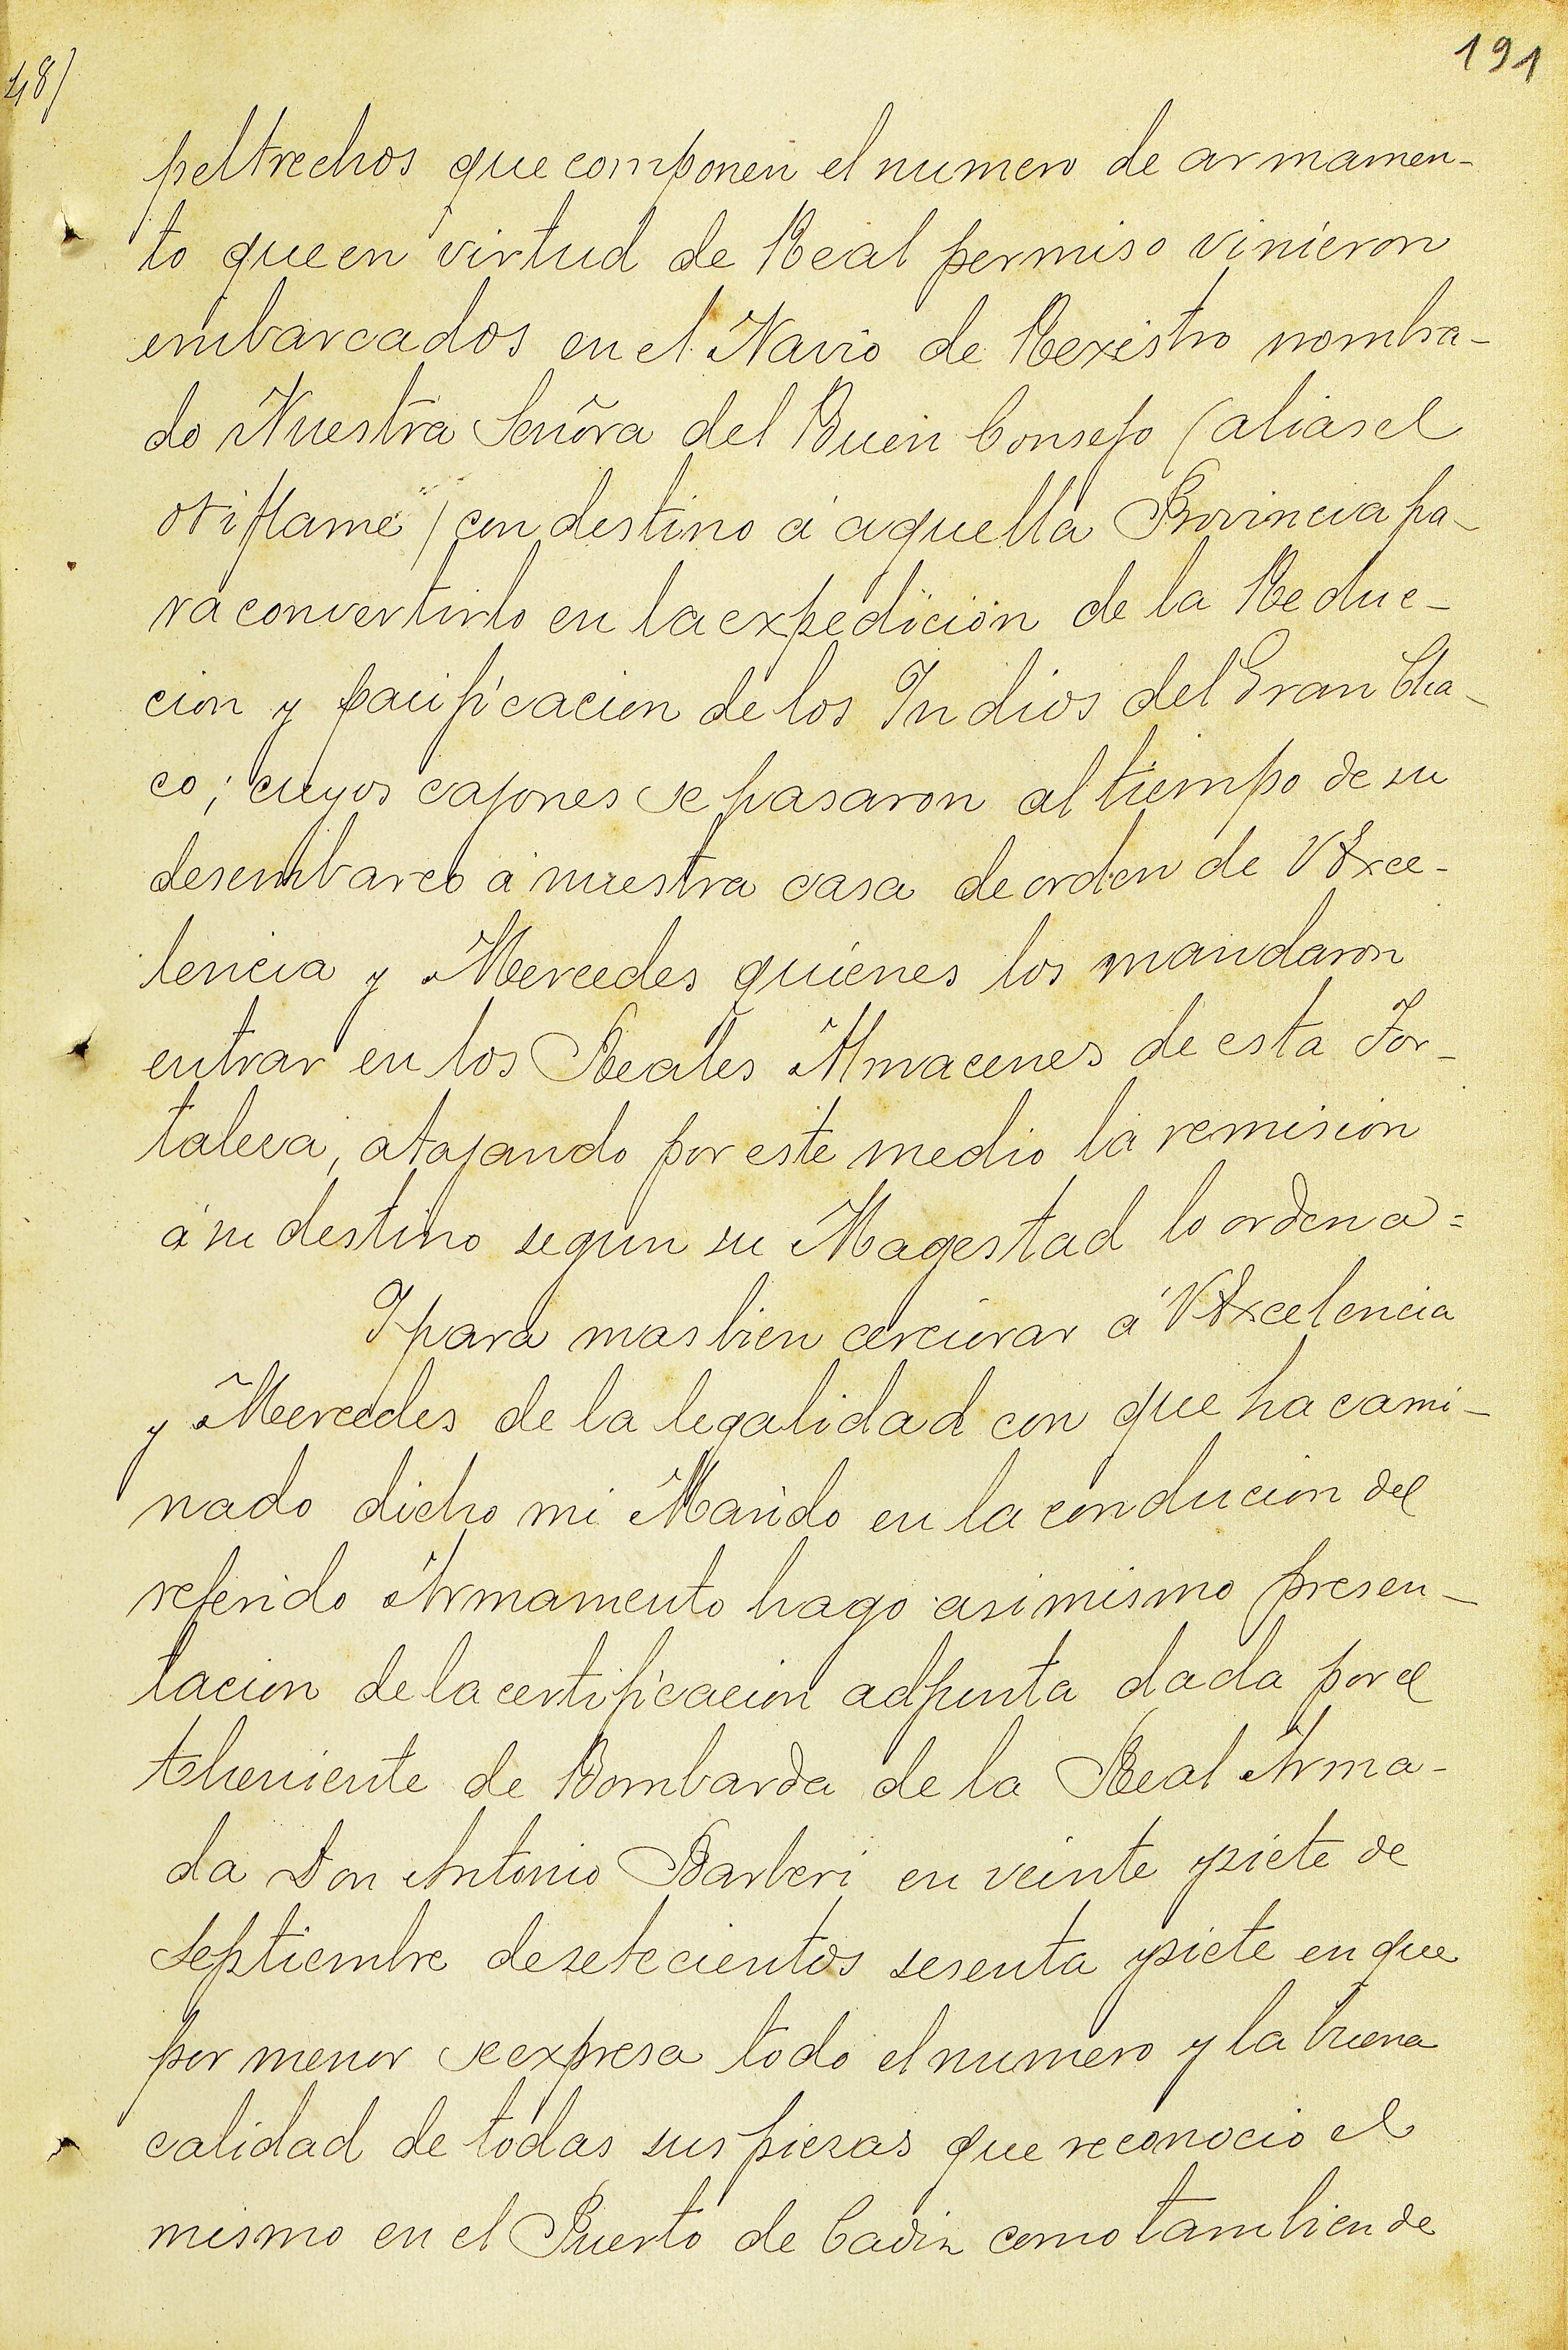 191
48)
peltrechos que componen el numero de armamen-
to que en virtud de Real permiso vinieron
embarcados en el Navio de Rexistro nombra-
do Nuestra Señora del Buen Consejo (alias el
oriflame) con destino á aquella Provincia pa-
ra convertirlo en la expedicion de la Reduc-
cion y pacificacion de los Indios del Gran Cha-
co; cuyos cajones se pasaron al tiempo de su
desembarco á nuestra casa de orden de VExce-
lencia y Mercedes quienes los mandaron
entrar en los Reales Almacenes de esta For-
taleza, atajando por este medio la remision
á su destino segun su Magestad lo ordena=
Y para mas bien cerciorar á VExcelencia
y Mercedes de la legalidad con que ha cami-
nado dicho mi Marido en la conducion del
referido Armamento hago asimismo presen-
tacion de la certificacion adjunta dada por el
theniente de Bombarda de la Real Arma-
da Don Antonio Barberi en veinte y siete de
septiembre de setecientos sesenta y siete en que
por menor se expresa todo el numero y la buena
calidad de todas sus piezas que reconocio el
mismo en el Puerto de Cadiz como tambien de